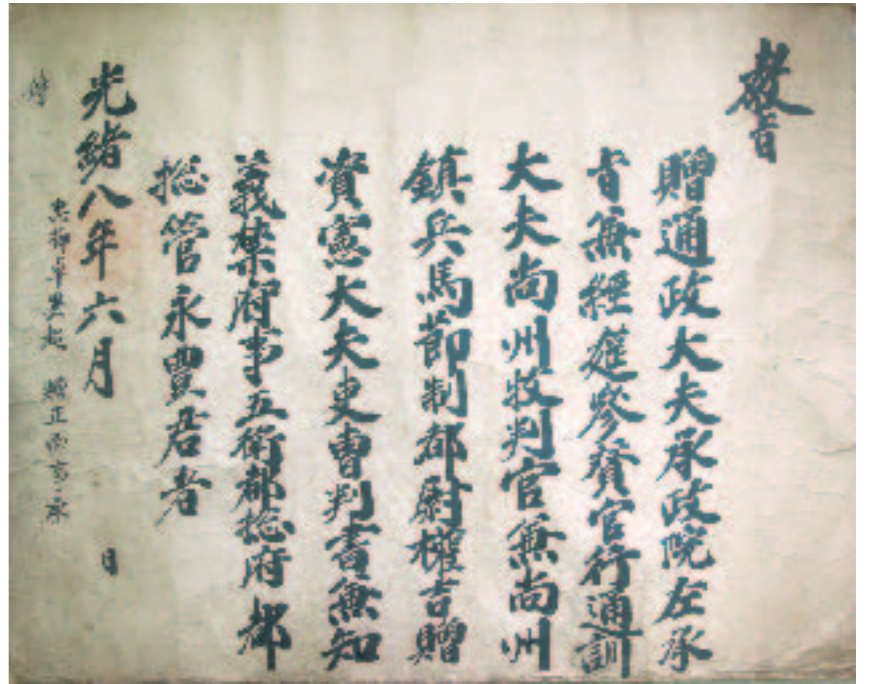 教旨
贈通政大夫承政院左承
旨兼經筵參贊官行通訓
大夫尙州牧判官兼尙州
鎭兵馬節制都尉權吉贈
資憲大夫吏曹判書兼知
義禁府事五衛都摠府都
摠管永賈君者
光緖八年六月 日
忠節卓異超 贈正卿事承
傳